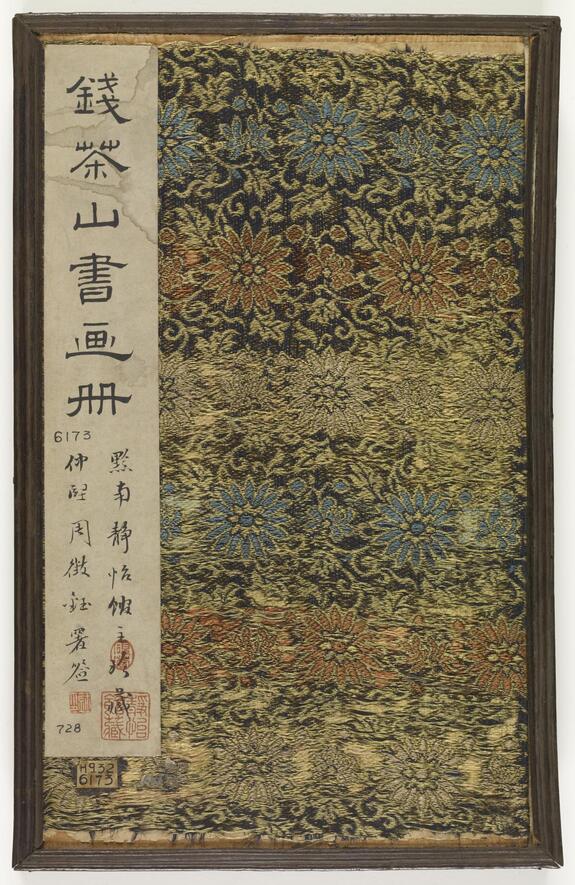 錢茶山書画册
6173
黔南靜怡館主珍藏
仲經周徵鈺署签
728
H932
6173